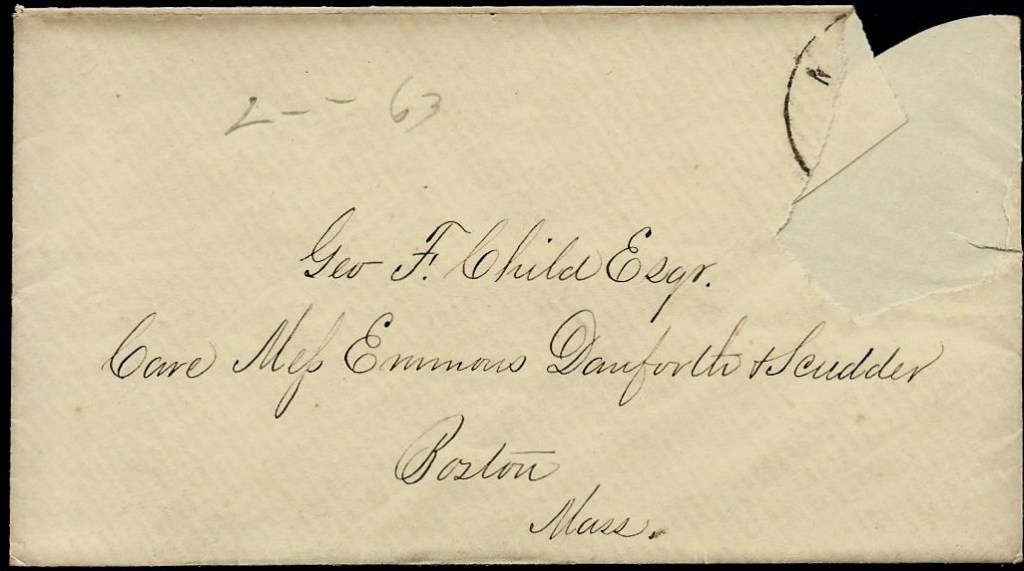 2 - - 63
N
Geo F. Child Esqr.
Care Meſs Emmons Danforth & Scudder
Boston
Mass.